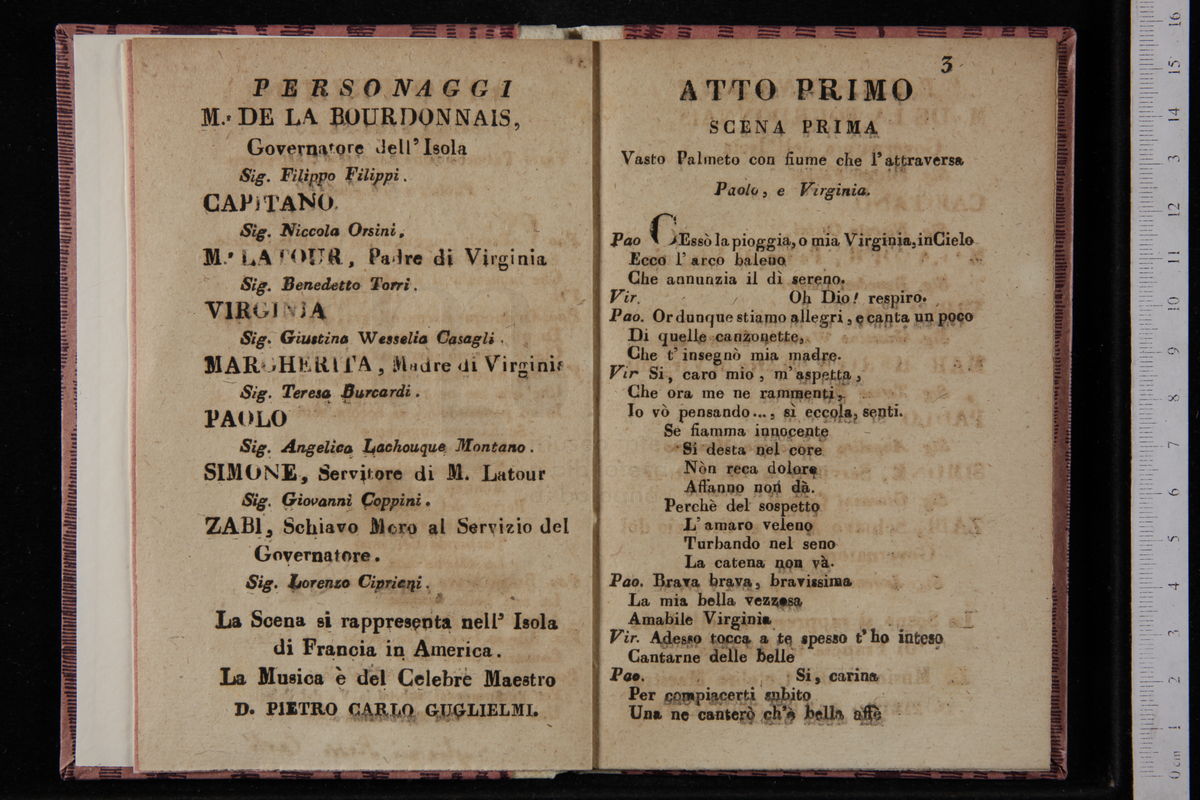 PERSONAGGI
M.r DE LA BOURDONNAIS,
Governatore dell' Isola
Sig. Filippo Filippi.
CAPITANO.
Sig. Niccola Orsini.
M.r LATOUR, Padre di Virginia
Sig. Benedetto Torri.
VIRGINIA
Sig. Giustina Wesselia Casagli.
MARGHERITA, Madre di Virginia
Sig. Teresa Burcardi.
PAOLO
Sig. Angelica Lachouque Montano.
SIMONE, Servitore di M. Latour
Sig. Giovanni Coppini.
ZABI, Schiavo Moro al Servizio del
Governatore.
Sig. Lorenzo Cipriani.
La Scena si rappresenta nell' Isola
di Francia in America.
La Musica è del Celebre Maestro
D. PIETRO CARLO GUGLIELMI.
3
ATTO PRIMO
SCENA PRIMA
Vasto Palmeto con fiume che l'attraversa
Paolo, e Virginia.
Pao CEssò la pioggia, o mia Virginia, in Cielo
Ecco l'arco baleno
Che annunzia il dì sereno.
Vir. Oh Dio! respiro.
Pao. Or dunque stiamo allegri, e canta un poco
Di quelle canzonette,
Che t'insegnò mia madre.
Vir Si, caro mio, m'aspetta,
Che ora me ne rammenti,
Io vò pensando..., sì eccola, senti.
Se fiamma innocente
Si desta nel core
Nòn reca dolore
Affanno non dà.
Perchè del sospetto
L'amaro veleno
Turbando nel seno
La catena non và.
Pao. Brava brava, bravissima
La mia bella vezzosa
Amabile Virginia
Vir. Adesso tocca a te spesso t'ho inteso
Cantarne delle belle
Pao. Si, carina
Per compiacerti subito
Una ne canterò ch'è bella affè
0 cm 1 2 3 4 5 6 7 8 9 10 11 12 13 14 15 16